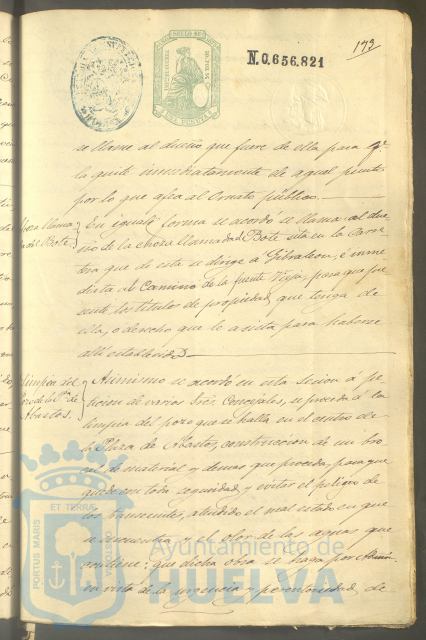 173
N.0.656.821
se llame al dueño que fuere de ella para qe
la quite inmediatamente de aquel punto
por lo que afea al Ornato público.
Choza llamada
del Bote.
En igual forma se acordó se llame al due
ño de la choza llamada del Bote sita en la Carre
tera que de esta se dirige a Gibraleon, é inme
diata al Camino de la fuente Vieja, para que pre
sente los títulos de propiedad que tenga de
ella, o derecho que le asista para haberse
allí establecido.
Limpia del
Pozo de la Pza de
Abastos.
Asimismo se acordó en esta sesion á pe
ticion de varios Sres. Concejales, se proceda á la
limpia del pozo que se halla en el centro de
la Plaza de Abastos, construccion de un bro
cal de material y demas que proceda, para que
quede con toda seguridad, y evitar el peligro de
los transeuntes, atendido el mal estado en que
se encuentra y el olor de las aguas que
contiene; que dicha obra se haga por Admon
en vista de la urgencia y perentoriedad de
PORTUS MARIS
ET TERRAE
CUSTODIA
Ayuntamiento de
HUELVA